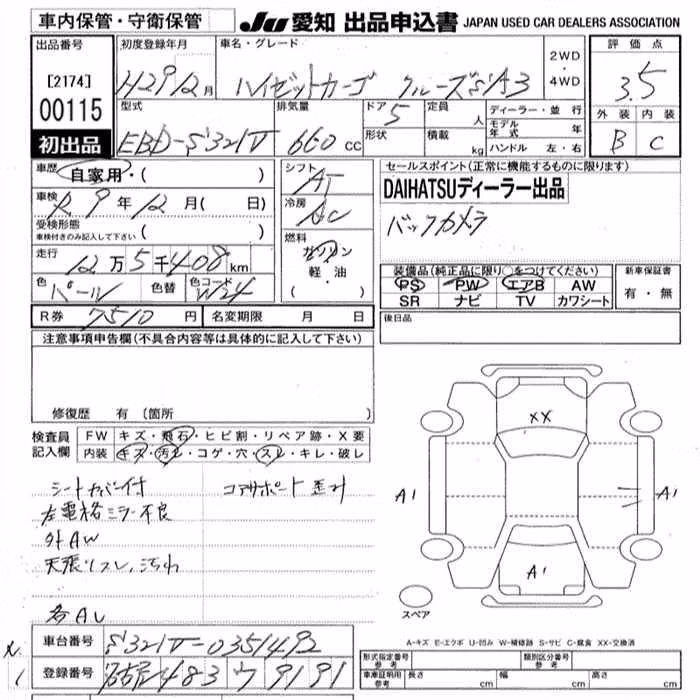 車内保管・守衛保管
JU 愛知 出品申込書 JAPAN USED CAR DEALERS ASSOCIATION
出品番号
[2174]
00115
初出品
初度登録年月
H29 12月
車名・グレード
ハイゼットカーゴ クルーズSA3
2WD
・
4WD
評価点
3.5
外装 内装
B C
型式
EBD-S321V
排気量
660 CC
ドア
5
形状
定員
人
積載
kg
ディーラー・並行
モデル年式 年
ハンドル 左・右
車歴
自家用・( )
車検
R9年12月( 日)
受検形態
車検付きのみ記入して下さい ( )
走行
12万5千408km
色
パール
色替
色コード
W24
シフト
AT
冷房
AC
燃料
ガソリン
軽・油
( )
セールスポイント(正常に機能するものに限ります)
DAIHATSUディーラー出品
バックカメラ
装備品(純正品に限り○をつけてください)
PS PW エアB AW
SR ナビ TV カワシート
新車保証書
有・無
R券 7510円 名変期限 月 日
後日品
注意事項申告欄(不具合内容等は具体的に記入して下さい)
修復歴 有(箇所 )
検査員記入欄
FW キズ・飛石・ヒビ割・リペア跡・X要
内装 キズ・汚レ・コゲ・穴・スレ・キレ・破レ
シートカバー付
左電格ミラー不良
外AW
天張リスレ、汚れ
コアサポート歪み
XX
A1
A1
A1
スペア
A-キズ E-エクボ U-凹み W-補修跡 S-サビ C-腐食 XX-交換済
車台番号 S321V-0351492
登録番号 483 ウ 9191
形式指定番号 参考
類別区分番号 参考
車庫証明用 参考 長さ cm 幅 cm 高さ cm